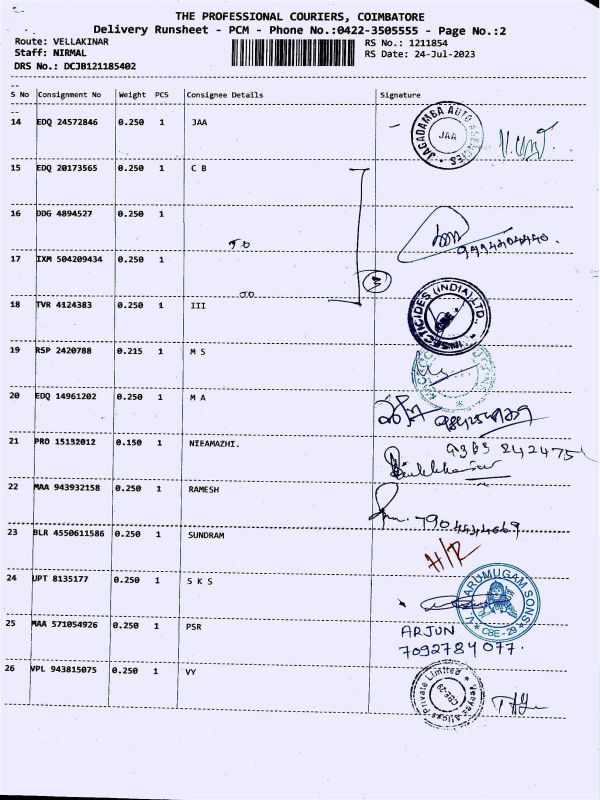 THE PROFESSIONAL COURIERS, COIMBATORE
Delivery Runsheet - PCM - Phone No.:0422-3505555 - Page No.:2
Route: VELLAKINAR
RS No.: 1211854
Staff: NIRMAL
RS Date: 24-Jul-2023
DRS No.: DCJB121185402
S No Consignment No Weight PCS Consignee Details Signature
14 EDQ 24572846 0.250 1 JAA
JAGADAMBA AUTO AGENCIES
JAA
15 EDQ 20173565 0.250 1 C B
16 DDG 4894527 0.250 1
TO
9994404440.
17 IXM 504209434 0.250 1
TO
3
18 TVR 4124383 0.250 1 III
INSECTICIDES (INDIA) LTD.
19 RSP 2420788 0.215 1 M S
20 EDQ 14961202 0.250 1 M A
21 PRO 15132012 0.150 1 NIEAMAZHI.
9363 242475
22 MAA 943932158 0.250 1 RAMESH
7904444669
23 BLR 4550611586 0.250 1 SUNDRAM
H/R
24 UPT 8135177 0.250 1 S K S
ARUMUGAM SONS
CBE-29
25 MAA 571054926 0.250 1 PSR
ARJUN
7092784077.
26 VPL 943815075 0.250 1 VY
Veeyes Alloys Private Limited
CBE-29